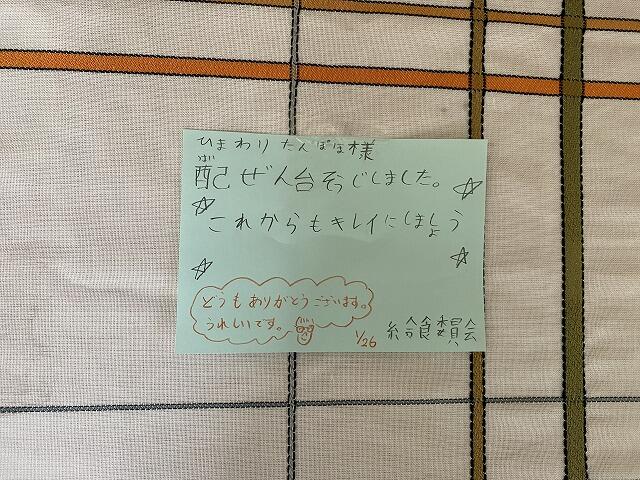 ひまわり たんぽぽ様
はい
配ぜん台そうじしました。
これからもキレイにしましょう
どうもありがとうございます。
うれしいです。
1/26
給食委員会